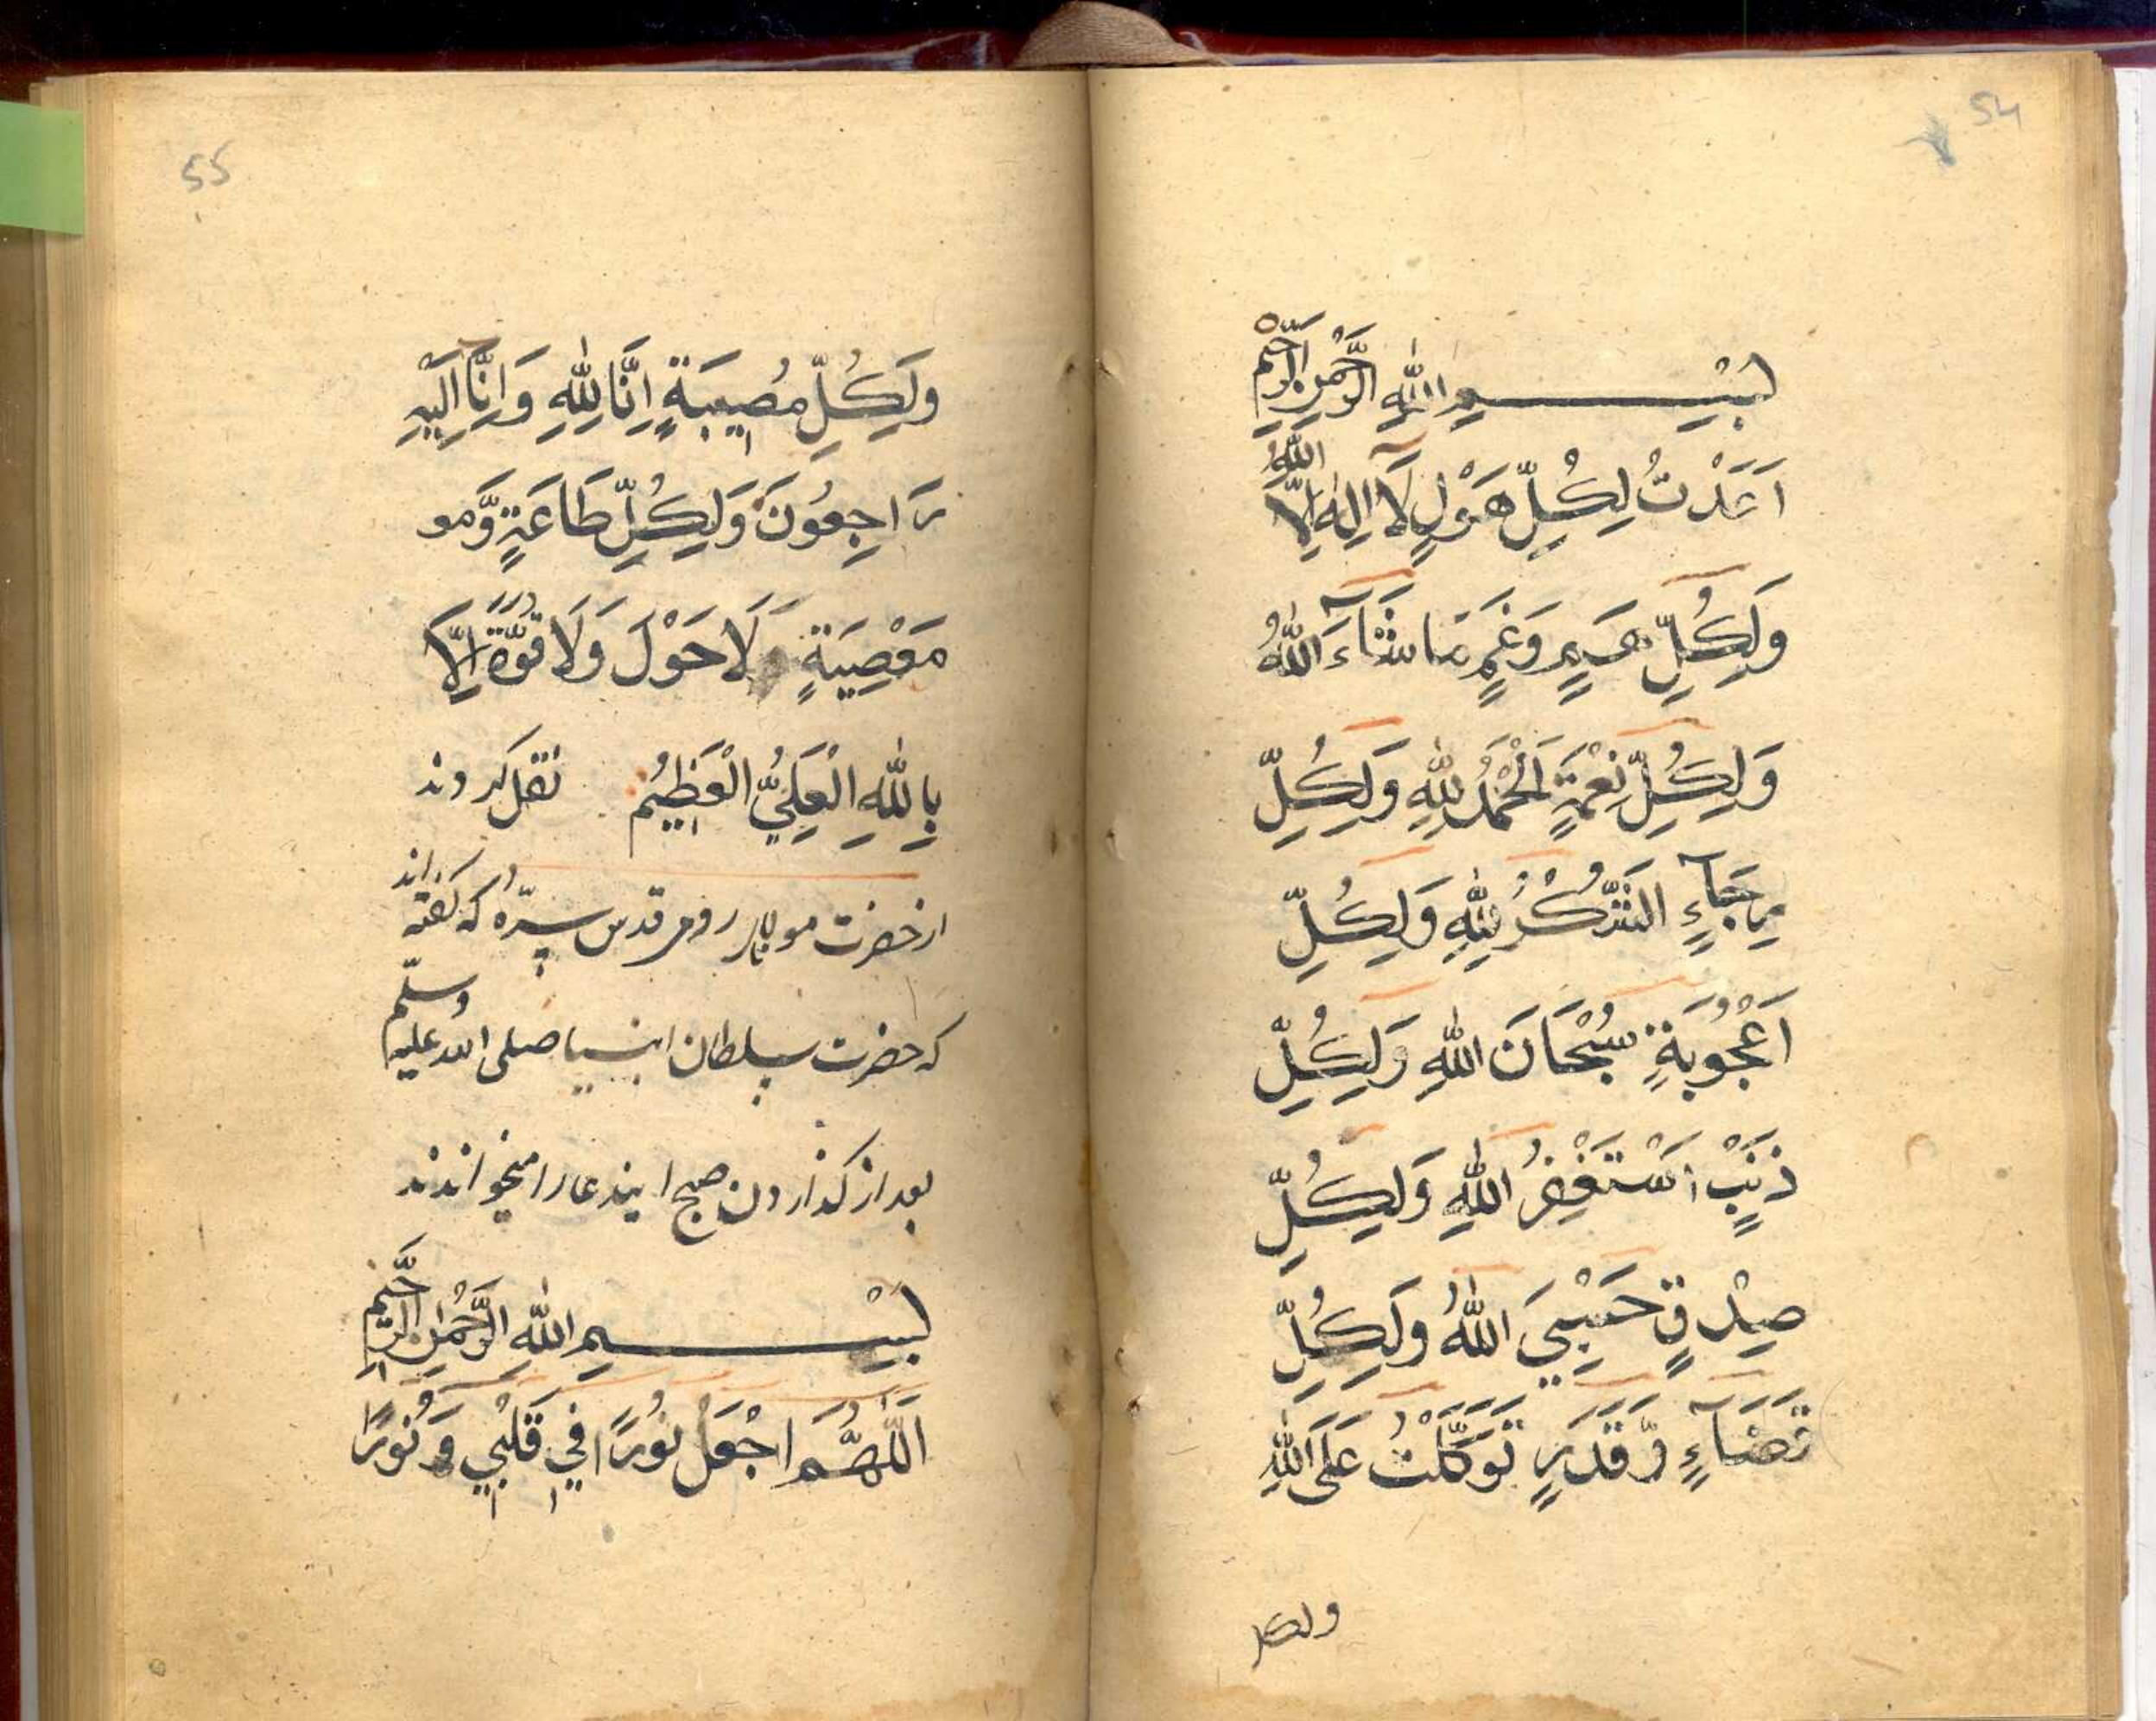 54
بِسْمِ اللّٰهِ الرَّحْمٰنِ الرَّحِيْمِ
اَعْدَدْتُ لِكُلِّ هَوْلٍ لَآ اِلٰهَ اِلَّا اللّٰهُ
وَلِكُلِّ هَمٍّ وَغَمٍّ مَاشَآءَ اللّٰهُ
وَلِكُلِّ نِعْمَةٍ اَلْحَمْدُ لِلّٰهِ وَلِكُلِّ
رِجَآءٍ الشُّكْرُ لِلّٰهِ وَلِكُلِّ
اَعْجُوْبَةٍ سُبْحَانَ اللّٰهِ وَلِكُلِّ
ذَنْبٍ اَسْتَغْفِرُ اللّٰهِ وَلِكُلِّ
صِدْقٍ حَسْبِيَ اللّٰهُ وَلِكُلِّ
قَضَآءٍ وَّقَدَرٍ تَوَكَّلْتُ عَلَى اللّٰهِ
ولكل
55
وَلِكُلِّ مُصِيبَةٍ اِنَّا لِلّٰهِ وَاِنَّآ اِلَيْهِ
رَاجِعُوْنَ وَلِكُلِّ طَاعَةٍ وَّمو
مَعْصِيَةٍ لَاحَوْلَ وَلَا قُوَّةَ اِلَّا
بِاللّٰهِ الْعَلِيُّ الْعَظِيْمُ نقل كردند
از حضرت مولانا رومى قدس سرّه كه گفته اند
كه حضرت سلطان انبيا صلى الله عليه وسلّم
بعد از گذاردن صبح ايندعا را ميخواندند
بِسْمِ اللّٰهِ الرَّحْمٰنِ الرَّحِيْمِ
اَللّٰهُمَّ اجْعَلْ نُوْرًا فِيْ قَلْبِيْ وَنُوْرًا